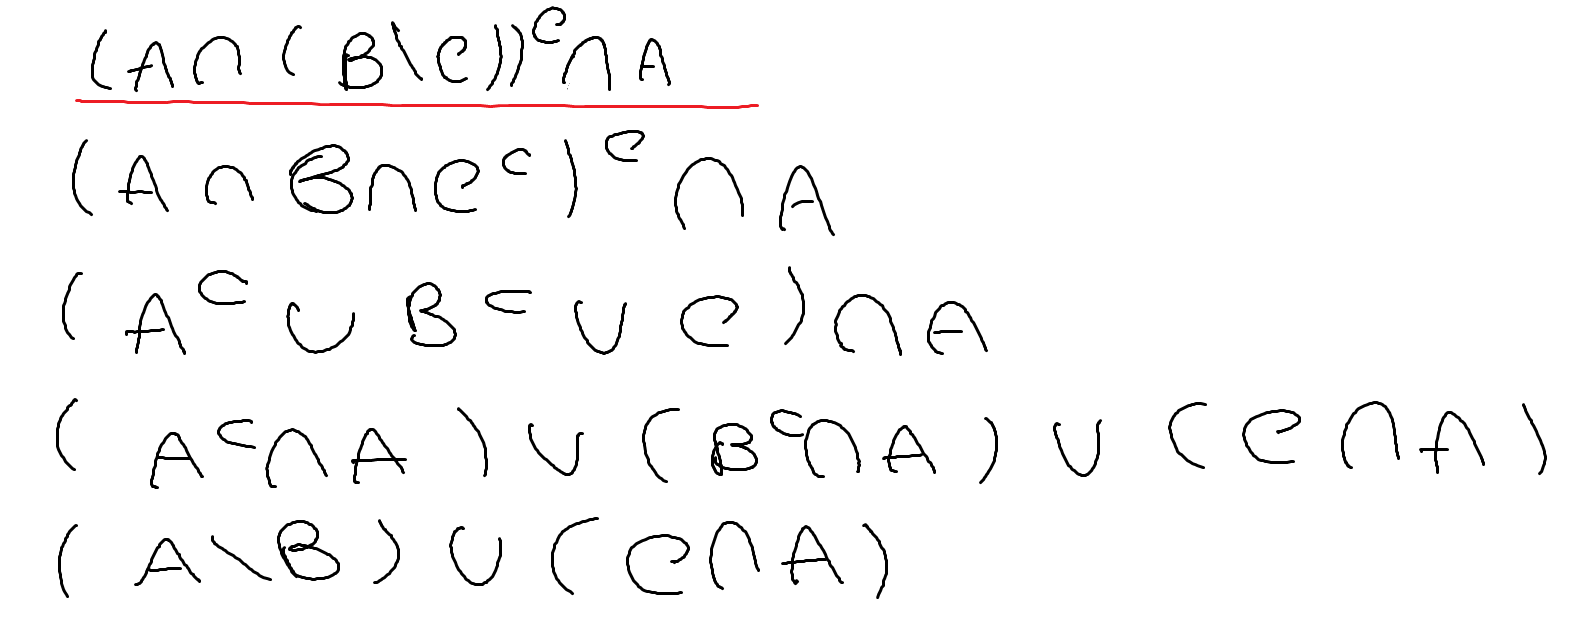 (A∩(B\C))ᶜ∩A
(A∩B∩Cᶜ)ᶜ∩A
(Aᶜ∪Bᶜ∪C)∩A
(Aᶜ∩A)∪(Bᶜ∩A)∪(C∩A)
(A\B)∪(C∩A)